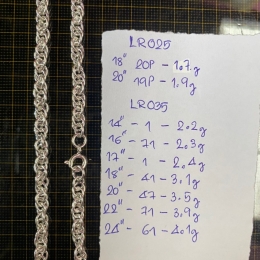 LR025
18" 20P - 1.7.g
20" 19P - 1.9g
LR035
14" - 1 - 2.2g
16" - 71 - 2.3g
17" - 1 - 2.4g
18" - 41 - 3.1g
20" - 47 - 3.5g
22" - 71 - 3.9g
24" - 61 - 4.1g